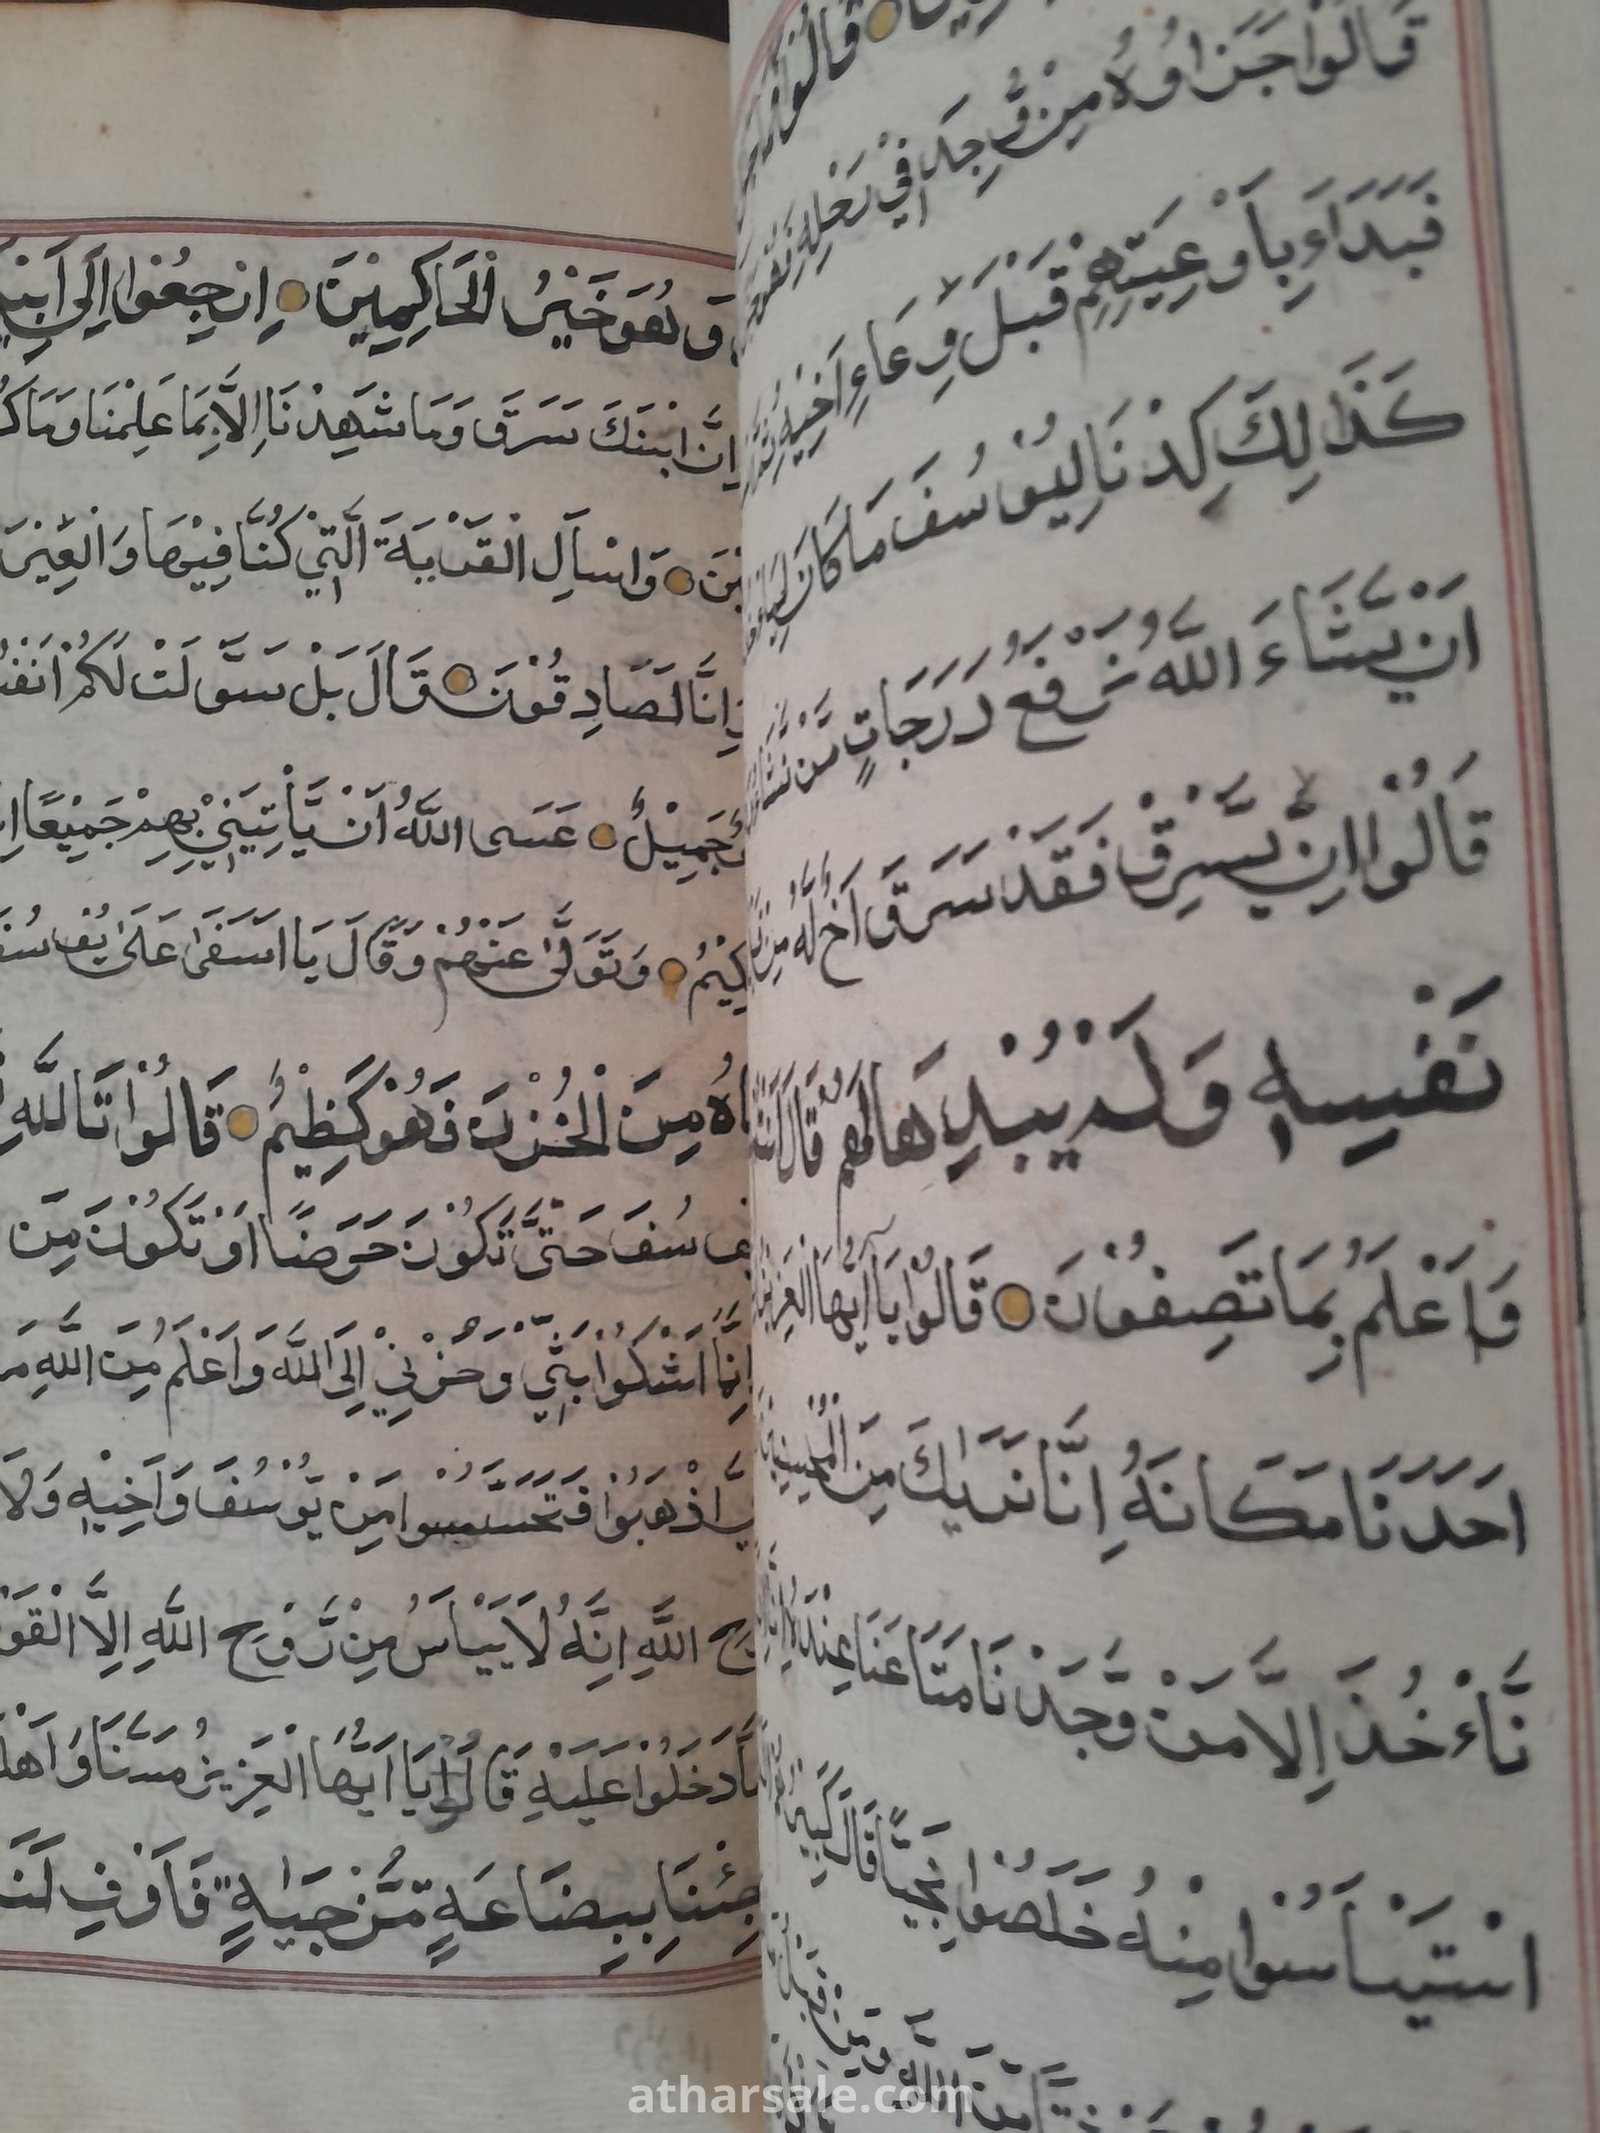 قَالُوا جَزَاؤُهُ مِنْ وُّجِدَ فِي رَحْلِهِ
فَبَدَاءَ بِأَوْعِيَتِهِمْ قَبْلَ وِعَاءِ اَخِيْهِ
كَذَالِكَ كِدْنَا لِيُوْسُفَ مَا كَانَ
اَنْ يَّشَاءَ اللَّهُ نَرْفَعُ دَرَجَاتٍ مَّنْ نَشَاءُ
قَالُوْا اِنْ يَّسْرِقْ فَقَدْ سَرَقَ اَخٌ لَهُ مِنْ
نَفْسِهِ وَلَمْ يُبْدِهَا لَهُمْ قَالَ
وَاَعْلَمُ بِمَا تَصِفُوْنَ قَالُوْا يَا اَيُّهَا الْعَزِيْزُ
اَحَدَنَا مَكَانَهُ اِنَّا نَرَيٰكَ مِنَ الْمُحْسِنِيْنَ
نَّأْخُذَ اِلَّا مَنْ وَّجَدْنَا مَتَاعَنَا عِنْدَهُ
اسْتَيْأَسُوْا مِنْهُ خَلَصُوْا نَجِيًّا قَالَ كَبِيْرُهُمْ
مِّنَ اللَّهِ وَمِنْ قَبْلُ
وَهُوَ خَيْرُ الْحَاكِمِيْنَ اِرْجِعُوْا اِلَى اَبِيْ
اِنَّ ابْنَكَ سَرَقَ وَمَا شَهِدْنَا اِلَّا بِمَا عَلِمْنَا وَمَا
وَاسْأَلِ الْقَرْيَةَ الَّتِيْ كُنَّا فِيْهَا وَالْعِيْرَ
اِنَّا لَصَادِقُوْنَ قَالَ بَلْ سَوَّلَتْ لَكُمْ اَنْفُ
جَمِيْلٌ عَسَى اللَّهُ اَنْ يَّأْتِيَنِيْ بِهِمْ جَمِيْعًا
وَتَوَلَّى عَنْهُمْ وَقَالَ يَا اَسَفَى عَلَى يُوْسُفَ
مِنَ الْحُزْنِ فَهُوَ كَظِيْمٌ قَالُوْا تَاللَّهِ
سُفَ حَتَّى تَكُوْنَ حَرَضًا اَوْ تَكُوْنَ مِنَ
اِنَّمَا اَشْكُوْا بَثِّيْ وَحُزْنِيْ اِلَى اللَّهِ وَاَعْلَمُ مِنَ اللَّهِ
اذْهَبُوْا فَتَحَسَّسُوْا مِنْ يُّوْسُفَ وَاَخِيْهِ وَلَا
اللَّهِ اِنَّهُ لَا يَيْأَسُ مِنْ رَّوْحِ اللَّهِ اِلَّا الْقَوْ
دَخَلُوْا عَلَيْهِ قَالُوْا يَا اَيُّهَا الْعَزِيْزُ مَسَّنَا وَاَهْلَ
جِئْنَا بِبِضَاعَةٍ مُّزْجَيٰةٍ فَاَوْفِ لَنَ
atharsale.com